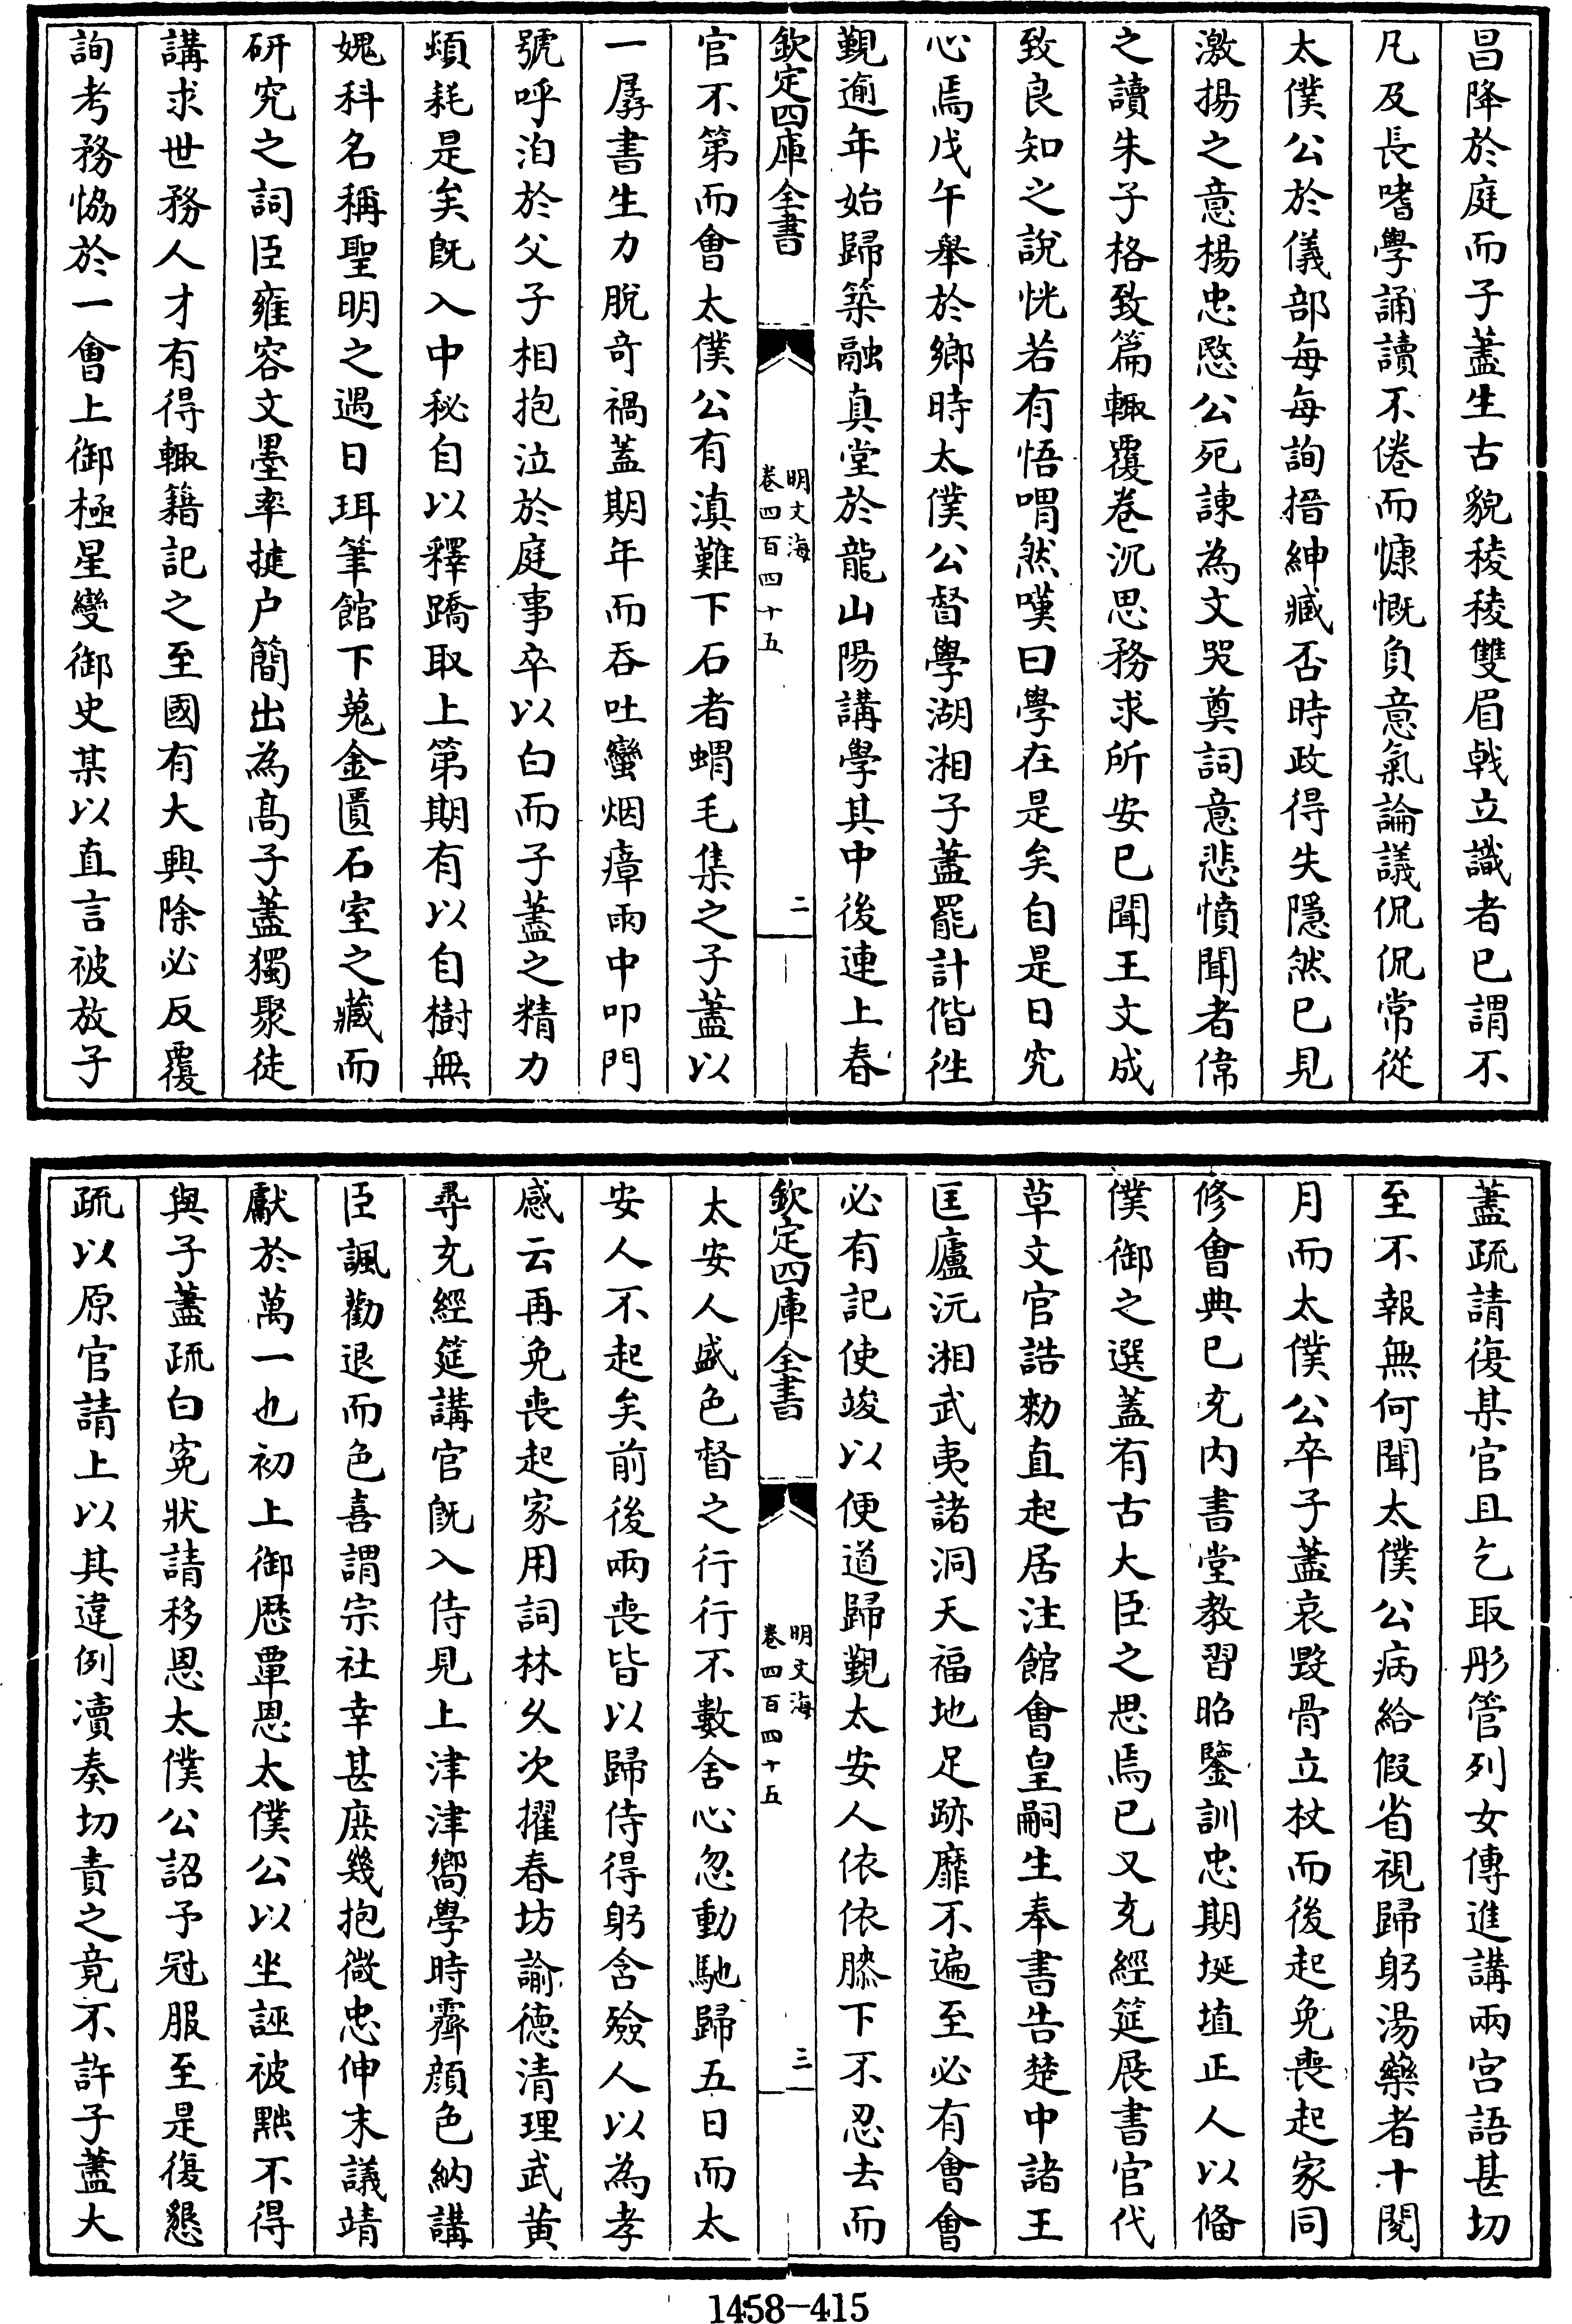 昌降於庭而子藎生古貌稜稜雙眉戟立識者已謂不
凡及長嗜學誦讀不倦而慷慨負意氣論議侃侃常從
太僕公於儀部每每詢搢紳臧否時政得失隱然已見
激揚之意楊忠愍公死諌為文哭奠詞意悲憤聞者偉
之讀朱子格致篇輙覆卷沉思務求所安已聞王文成
致良知之說恍若有悟喟然嘆曰學在是矣自是日究
心焉戊午舉於鄉時太僕公督學湖湘子藎罷計偕徃
覲逾年始歸築融真堂於龍山陽講學其中後連上春
欽定四庫全書
明文海
卷四百四十五
二
官不第而會太僕公有滇難下石者蝟毛集之子藎以
一孱書生力脫奇禍蓋期年而吞吐蠻烟瘴雨中叩門
號呼洎於父子相抱泣於庭事卒以白而子藎之精力
頗耗是矣旣入中秘自以釋蹻取上第期有以自樹無
媿科名稱聖明之遇日珥筆館下蒐金匱石室之藏而
研究之詞臣雍容文墨率揵户簡出為髙子藎獨聚徒
講求世務人才有得輙籍記之至國有大興除必反覆
詢考務恊於一會上御極星變御史某以直言被放子
藎疏請復某官且乞取彤管列女傳進講兩宫語甚切
至不報無何聞太僕公病給假省視歸躬湯藥者十閱
月而太僕公卒子藎哀毀骨立杖而後起免喪起家同
修會典已充内書堂教習昭鑒訓忠期埏埴正人以偹
僕御之選蓋有古大臣之思焉已又充經筵展書官代
草文官誥勑直起居注館會皇嗣生奉書告楚中諸王
匡廬沅湘武夷諸洞天福地足跡靡不遍至必有會會
必有記使竣以便道歸覲太安人依依膝下不忍去而
欽定四庫全書
明文海
卷四百四十五
三
太安人盛色督之行行不數舍心忽動馳歸五日而太
安人不起矣前後兩喪皆以歸侍得躬含殮人以為孝
感云再免喪起家用詞林久次擢春坊諭德清理武黃
尋充經筵講官旣入侍見上津津嚮學時霽顔色納講
臣諷勸退而色喜謂宗社幸甚庶幾抱微忠伸末議靖
獻於萬一也初上御厯覃恩太僕公以坐誣被黜不得
與子藎疏白寃狀請移恩太僕公詔予冠服至是復懇
疏以原官請上以其違例瀆奏切責之竟不許子藎大
1458-415